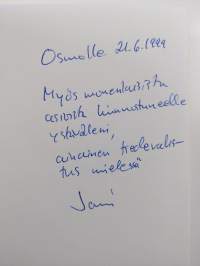 Osmolle 21.6.1999
Myös monenlaisista
asioista kiinnostuneelle
ystävälleni,
ainainen tiedevalis-
tus mielessä
Jani